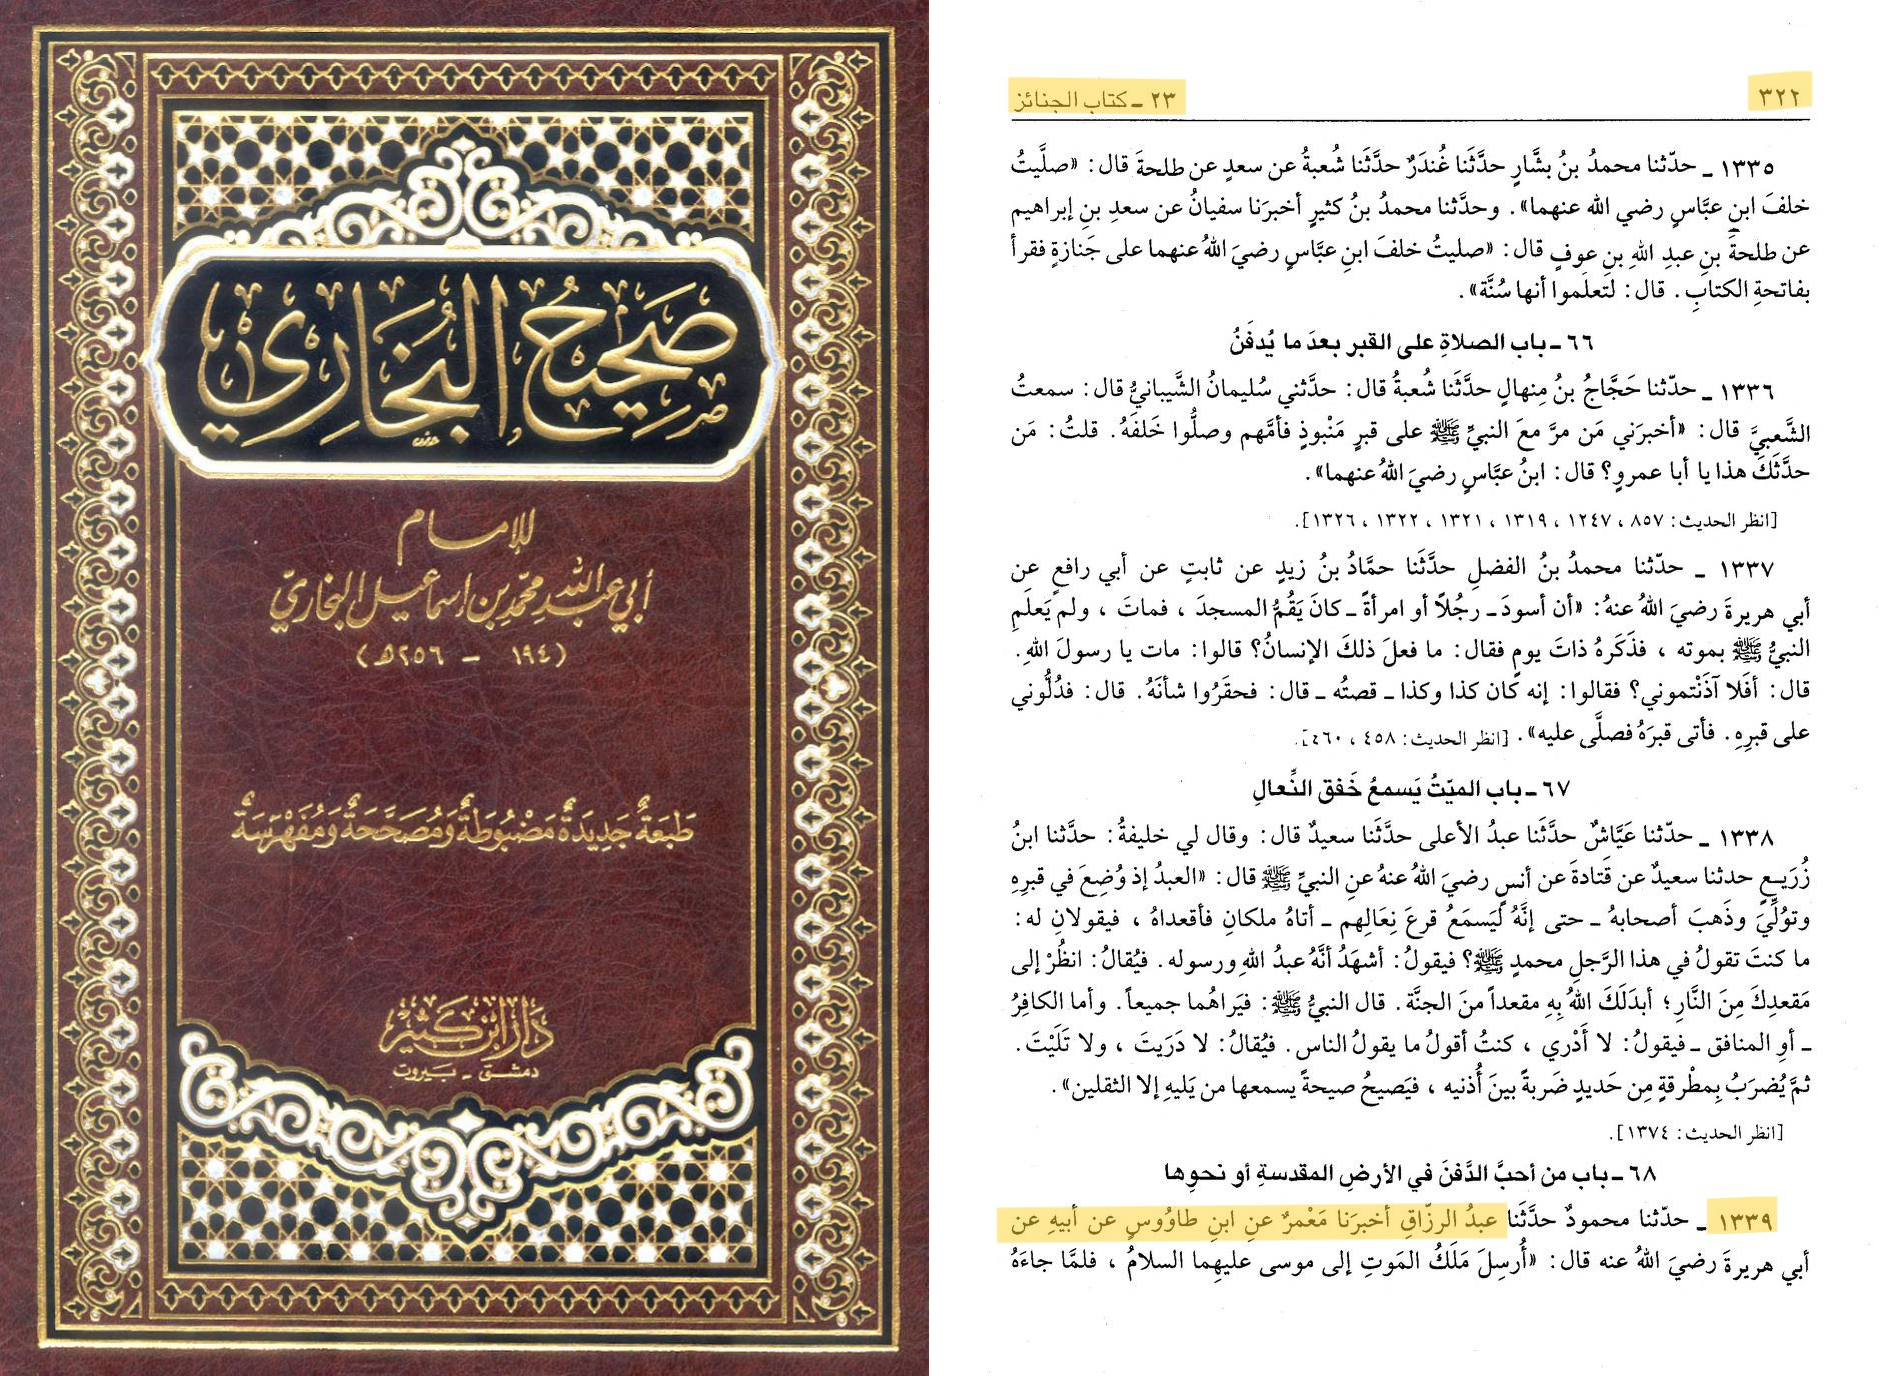 صَحِيحُ البُخَارِي
للإمام
أبي عبد الله محمّد بن إسماعيل البخاريّ
(١٩٤ - ٢٥٦ هـ)
طَبعَةٌ جَدِيدَةٌ مَضْبُوطَةٌ وَمُصَحَّحَةٌ وَمُفَهْرَسَةٌ
دَار ابْن كَثير
دمشق - بيروت
٣٢٢
٢٣ ـ كتاب الجنائز
١٣٣٥ ـ حدّثنا محمدُ بنُ بشَّارٍ حدَّثَنا غُندَرٌ حدَّثَنا شُعبةُ عن سعدٍ عن طلحةَ قال: «صلَّيتُ
خلفَ ابنِ عبَّاسٍ رضي الله عنهما». وحدَّثنا محمدُ بنُ كثيرٍ أخبرَنا سفيانُ عن سعدِ بنِ إبراهيم
عن طلحةَ بنِ عبدِ اللهِ بنِ عوفٍ قال: «صليتُ خلفَ ابنِ عبَّاسٍ رضيَ اللهُ عنهما على جَنازةٍ فقرأ
بفاتحةِ الكتابِ. قال: لتعلَموا أنها سُنَّة».
٦٦ ـ باب الصلاةِ على القبر بعدَ ما يُدفَنُ
١٣٣٦ ـ حدّثنا حَجَّاجُ بنُ مِنهالٍ حدَّثَنا شُعبةُ قال: حدَّثني سُليمانُ الشَّيبانيُّ قال: سمعتُ
الشَّعبيَّ قال: «أخبرَني مَن مرَّ معَ النبيِّ ﷺ على قبرٍ مَنْبوذٍ فأمَّهم وصلُّوا خَلفَهُ. قلتُ: مَن
حدَّثَكَ هذا يا أبا عمروٍ؟ قال: ابنُ عبَّاسٍ رضيَ اللهُ عنهما».
[انظر الحديث: ٨٥٧، ١٢٤٧، ١٣١٩، ١٣٢١، ١٣٢٢، ١٣٢٦].
١٣٣٧ ـ حدّثنا محمدُ بنُ الفضلِ حدَّثَنا حمَّادُ بنُ زيدٍ عن ثابتٍ عن أبي رافعٍ عن
أبي هريرةَ رضيَ اللهُ عنهُ: «أن أسودَ ـ رجُلاً أو امرأةً ـ كانَ يَقُمُّ المسجدَ، فماتَ، ولم يَعلمِ
النبيُّ ﷺ بموته، فذَكَرَهُ ذاتَ يومٍ فقال: ما فعلَ ذلكَ الإنسانُ؟ قالوا: مات يا رسولَ اللهِ.
قال: أفَلا آذَنْتموني؟ فقالوا: إنه كان كذا وكذا ـ قصتُه ـ قال: فحقَرُوا شأنَهُ. قال: فدُلُّوني
على قبرِهِ. فأتى قبرَهُ فصلَّى عليه». [انظر الحديث: ٤٥٨، ٤٦٠].
٦٧ ـ باب الميّتُ يَسمعُ خَفق النِّعالِ
١٣٣٨ ـ حدّثنا عَيَّاشٌ حدَّثَنا عبدُ الأعلى حدَّثَنا سعيدٌ قال: وقال لي خليفةُ: حدَّثنا ابنُ
زُرَيـعٍ حدثنا سعيدٌ عن قَتادةَ عن أنسٍ رضيَ اللهُ عنهُ عنِ النبيِّ ﷺ قال: «العبدُ إذ وُضِعَ في قبرِهِ
وتوُلِّيَ وذَهبَ أصحابهُ ـ حتى إنَّهُ لَيَسمَعُ قرعَ نِعَالِهم ـ أتاهُ ملكانِ فأقعداهُ، فيقولانِ له:
ما كنتَ تقولُ في هذا الرَّجلِ محمدٍ ﷺ؟ فيقولُ: أشهَدُ أنَّهُ عبدُ اللهِ ورسوله. فيُقالُ: انظُرْ إلى
مَقعدِكَ مِنَ النَّارِ؛ أبدَلَكَ اللهُ بِهِ مقعداً منَ الجنَّة. قال النبيُّ ﷺ: فيَراهُما جميعاً. وأما الكافِرُ
ـ أوِ المنافق ـ فيقولُ: لا أَدْري، كنتُ أقولُ ما يقولُ الناس. فيُقالُ: لا دَرَيتَ، ولا تَلَيْتَ.
ثمَّ يُضرَبُ بِمطْرقةٍ مِن حَديدٍ ضَربةً بينَ أُذنيه، فيَصيحُ صيحةً يسمعها من يَليهِ إلا الثقلين».
[انظر الحديث: ١٣٧٤].
٦٨ ـ باب من أحبَّ الدَّفنَ في الأرضِ المقدسةِ أو نحوِها
١٣٣٩ ـ حدّثنا محمودٌ حدَّثَنا عبدُ الرزّاقِ أخبرَنا مَعْمرٌ عنِ ابنِ طاوُوسٍ عن أبيهِ عن
أبي هريرةَ رضيَ اللهُ عنه قال: «أُرسِلَ مَلَكُ المَوتِ إلى موسى عليهِما السلامُ، فلمَّا جاءَهُ